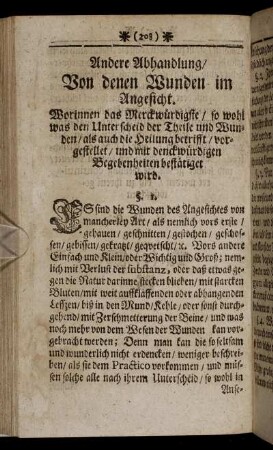 (208)
Andere Abhandlung/
Von denen Wunden im
Angesicht.
Worinnen das Merckwürdigste / so wohl
was den Unterscheid der Theile und Wun-
den / als auch die Heilung betrifft / vor-
gestellet / und mit denckwürdigen
Begebenheiten bestätiget
wird.
§. 1.
ES sind die Wunden des Angesichtes von
mancherley Art / als nemlich vors erste /
gehauen / geschnitten / gestochen / geschos-
sen / gebissen / gekratzt / gequetscht / ꝛc. Vors andere
Einfach und Klein / oder Wichtig und Groß; nem-
lich mit Verlust der substantz, oder daß etwas ge-
gen die Natur darinne stecken blieben / mit starcken
Bluten / mit weit auffklaffenden oder abhangenden
Leffzen / biß in den Mund / Kehle / oder sonst durch-
gehend / mit Zerschmetterung der Beine / und was
noch mehr von dem Wesen der Wunden kan vor-
gebracht werden; Denn man kan die so seltsam
und wunderlich nicht erdencken / weniger beschrei-
ben / als sie dem Practico vorkommen / und müs-
sen solche alle nach ihrem Unterscheid / so wohl in
Anse-